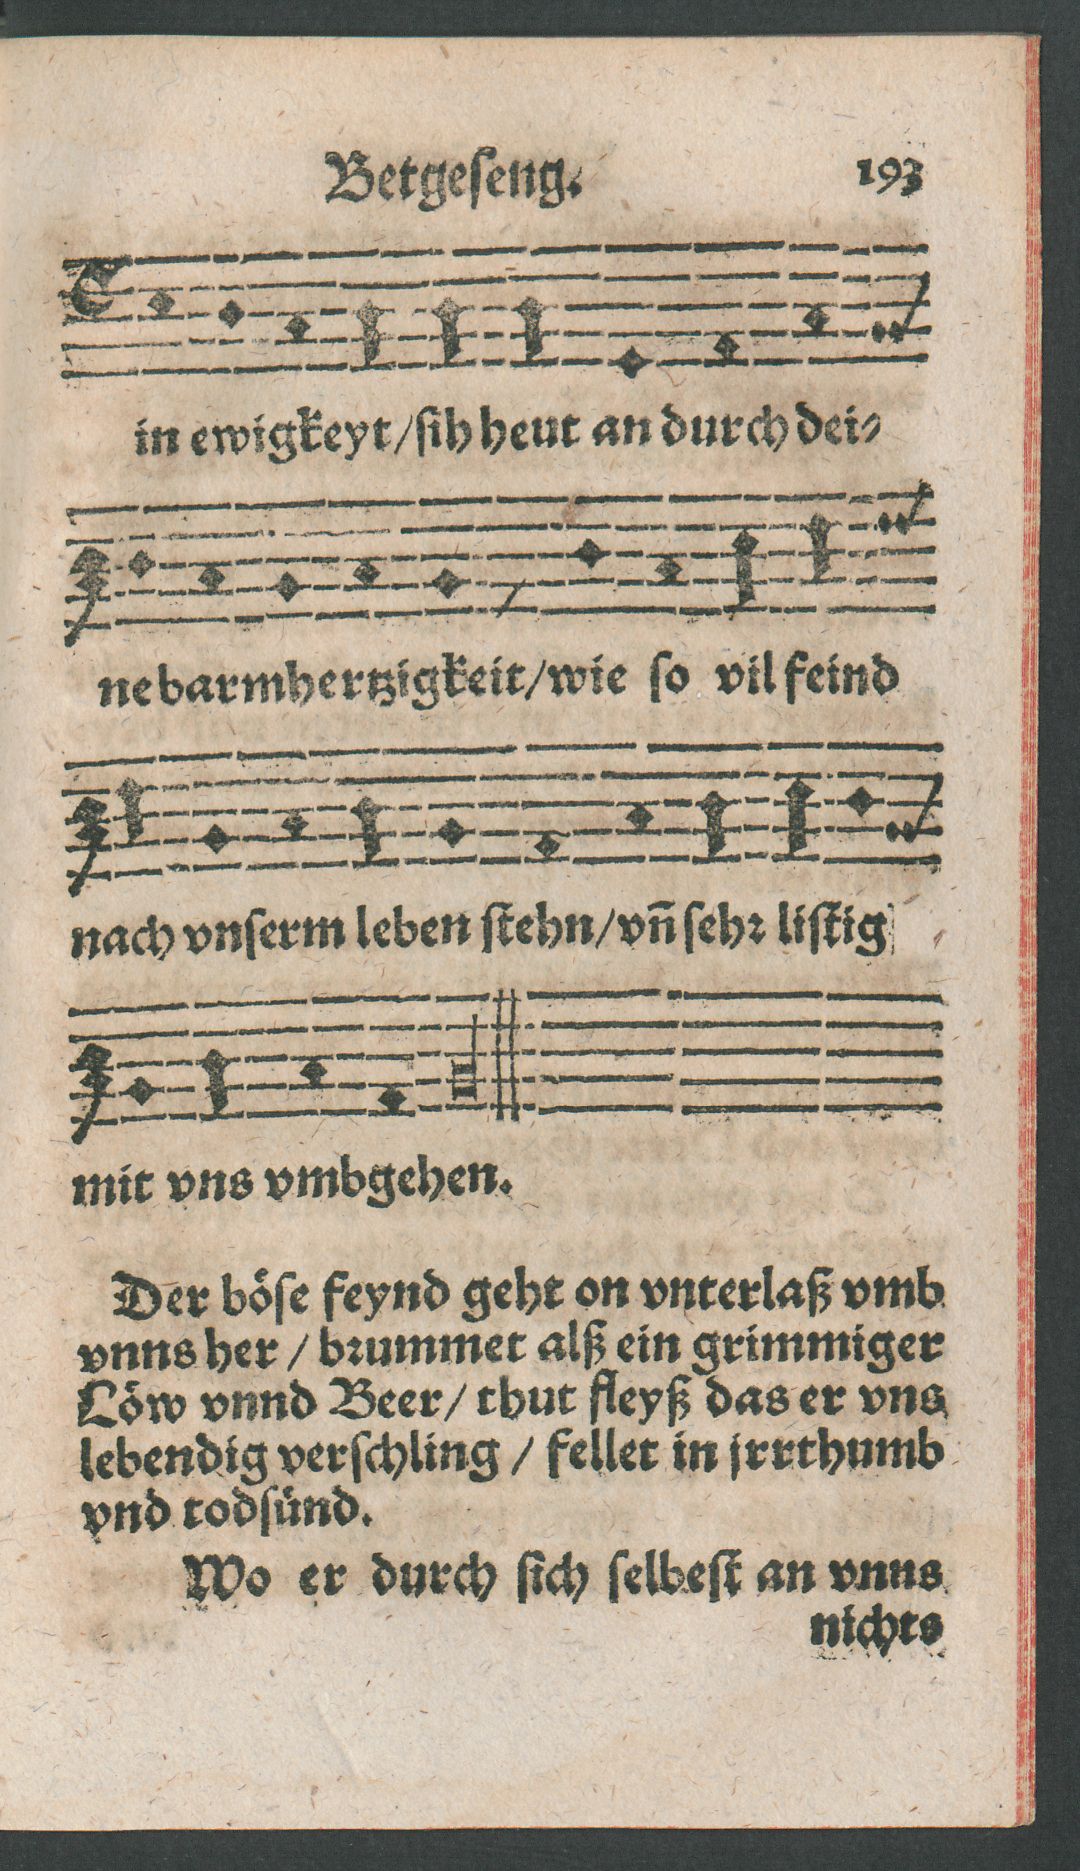 Betgeseng. 193
in ewigkeyt/sih heut an durch dei⸗
ne barmhertzigkeit/wie so vil feind
nach vnserm leben stehn/vñ sehr listig
mit vns vmbgehen.
Der böse feynd geht on vnterlaß vmb
vnns her / brummet alß ein grimmiger
Löw vnnd Beer/ thut fleyß das er vns
lebendig verschling / fellet in jrrthumb
vnd todsünd.
Wo er durch sich selbest an vnns
nichts